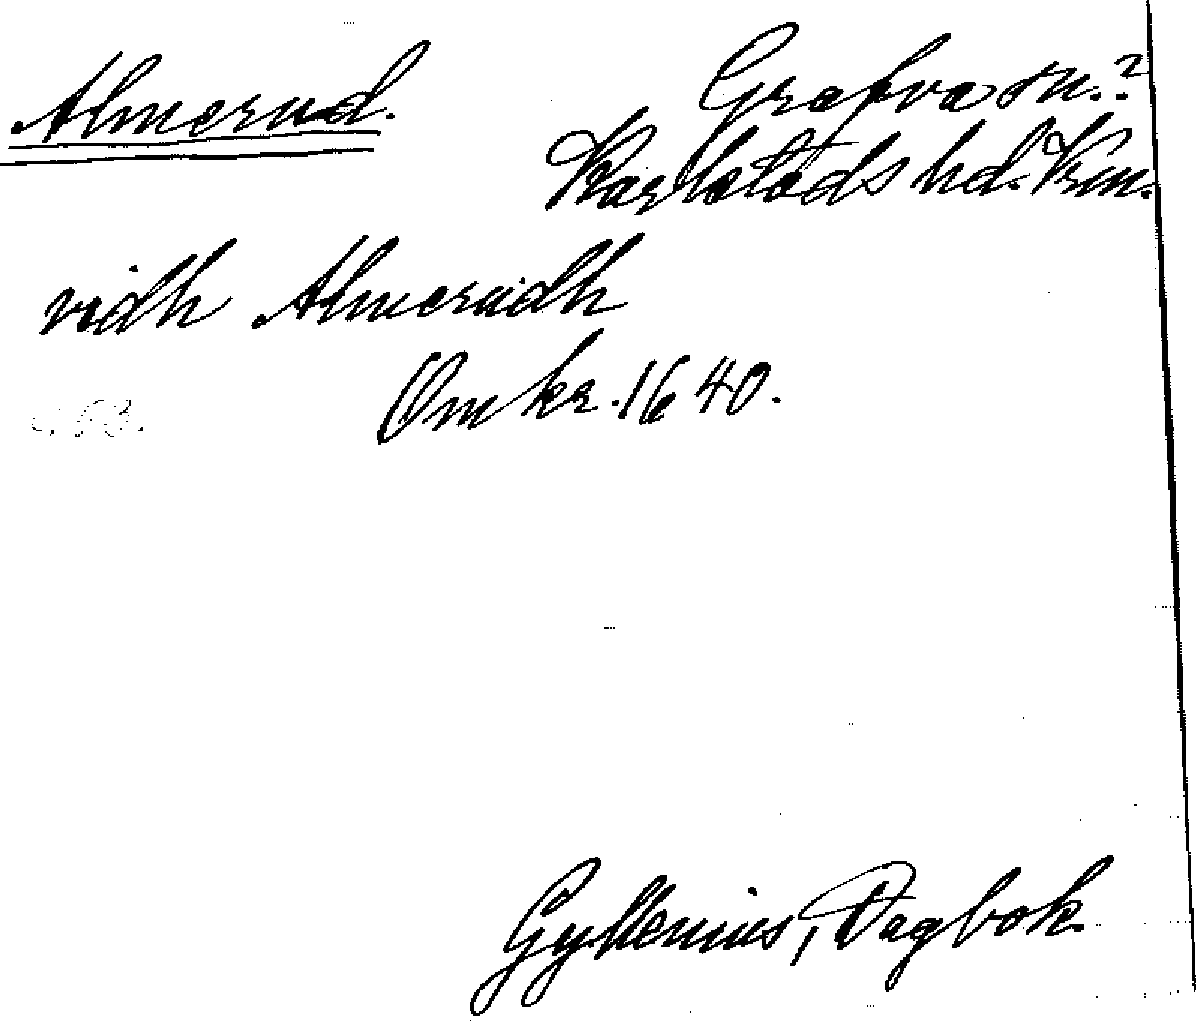 Almerud. Grafva sn.?
Karlstads hd. Vrm.
vidh Almerudh
Omkr. 1640.
Gyllenius, Dagbok.